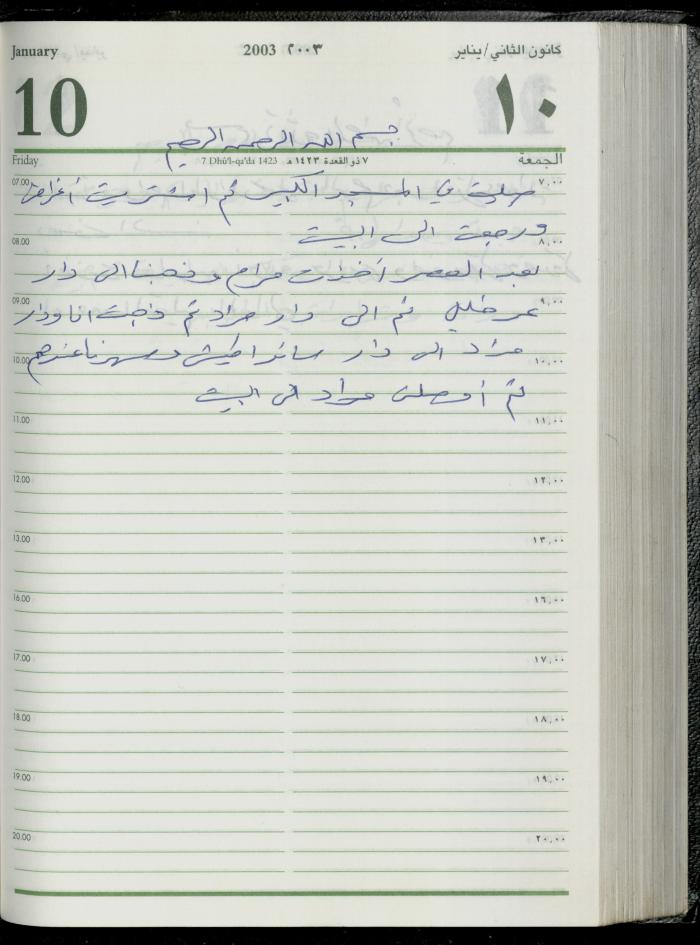 January 2003 ٢٠٠٣ كانون الثاني/يناير
10 ١٠
بسم الله الرحمن الرحيم
Friday 7 Dhû'l-qa'da 1423 ٧ ذو القعدة ١٤٢٣ هـ الجمعة
07.00 ٧,٠٠
صليت في المسجد الكبير ثم اشتريت أغراض
ورجعت الى البيت
08.00 ٨,٠٠
بعد العصر أخذت مرام وذهبنا الى دار
09.00 ٩,٠٠
ثم الى دار مراد ثم ذهبت انا ودار
10.00 ١٠,٠٠
مراد الى دار وسهرنا عندهم
ثم أوصلت مراد الى البيت
11.00 ١١,٠٠
12.00 ١٢,٠٠
13.00 ١٣,٠٠
16.00 ١٦,٠٠
17.00 ١٧,٠٠
18.00 ١٨,٠٠
19.00 ١٩,٠٠
20.00 ٢٠,٠٠